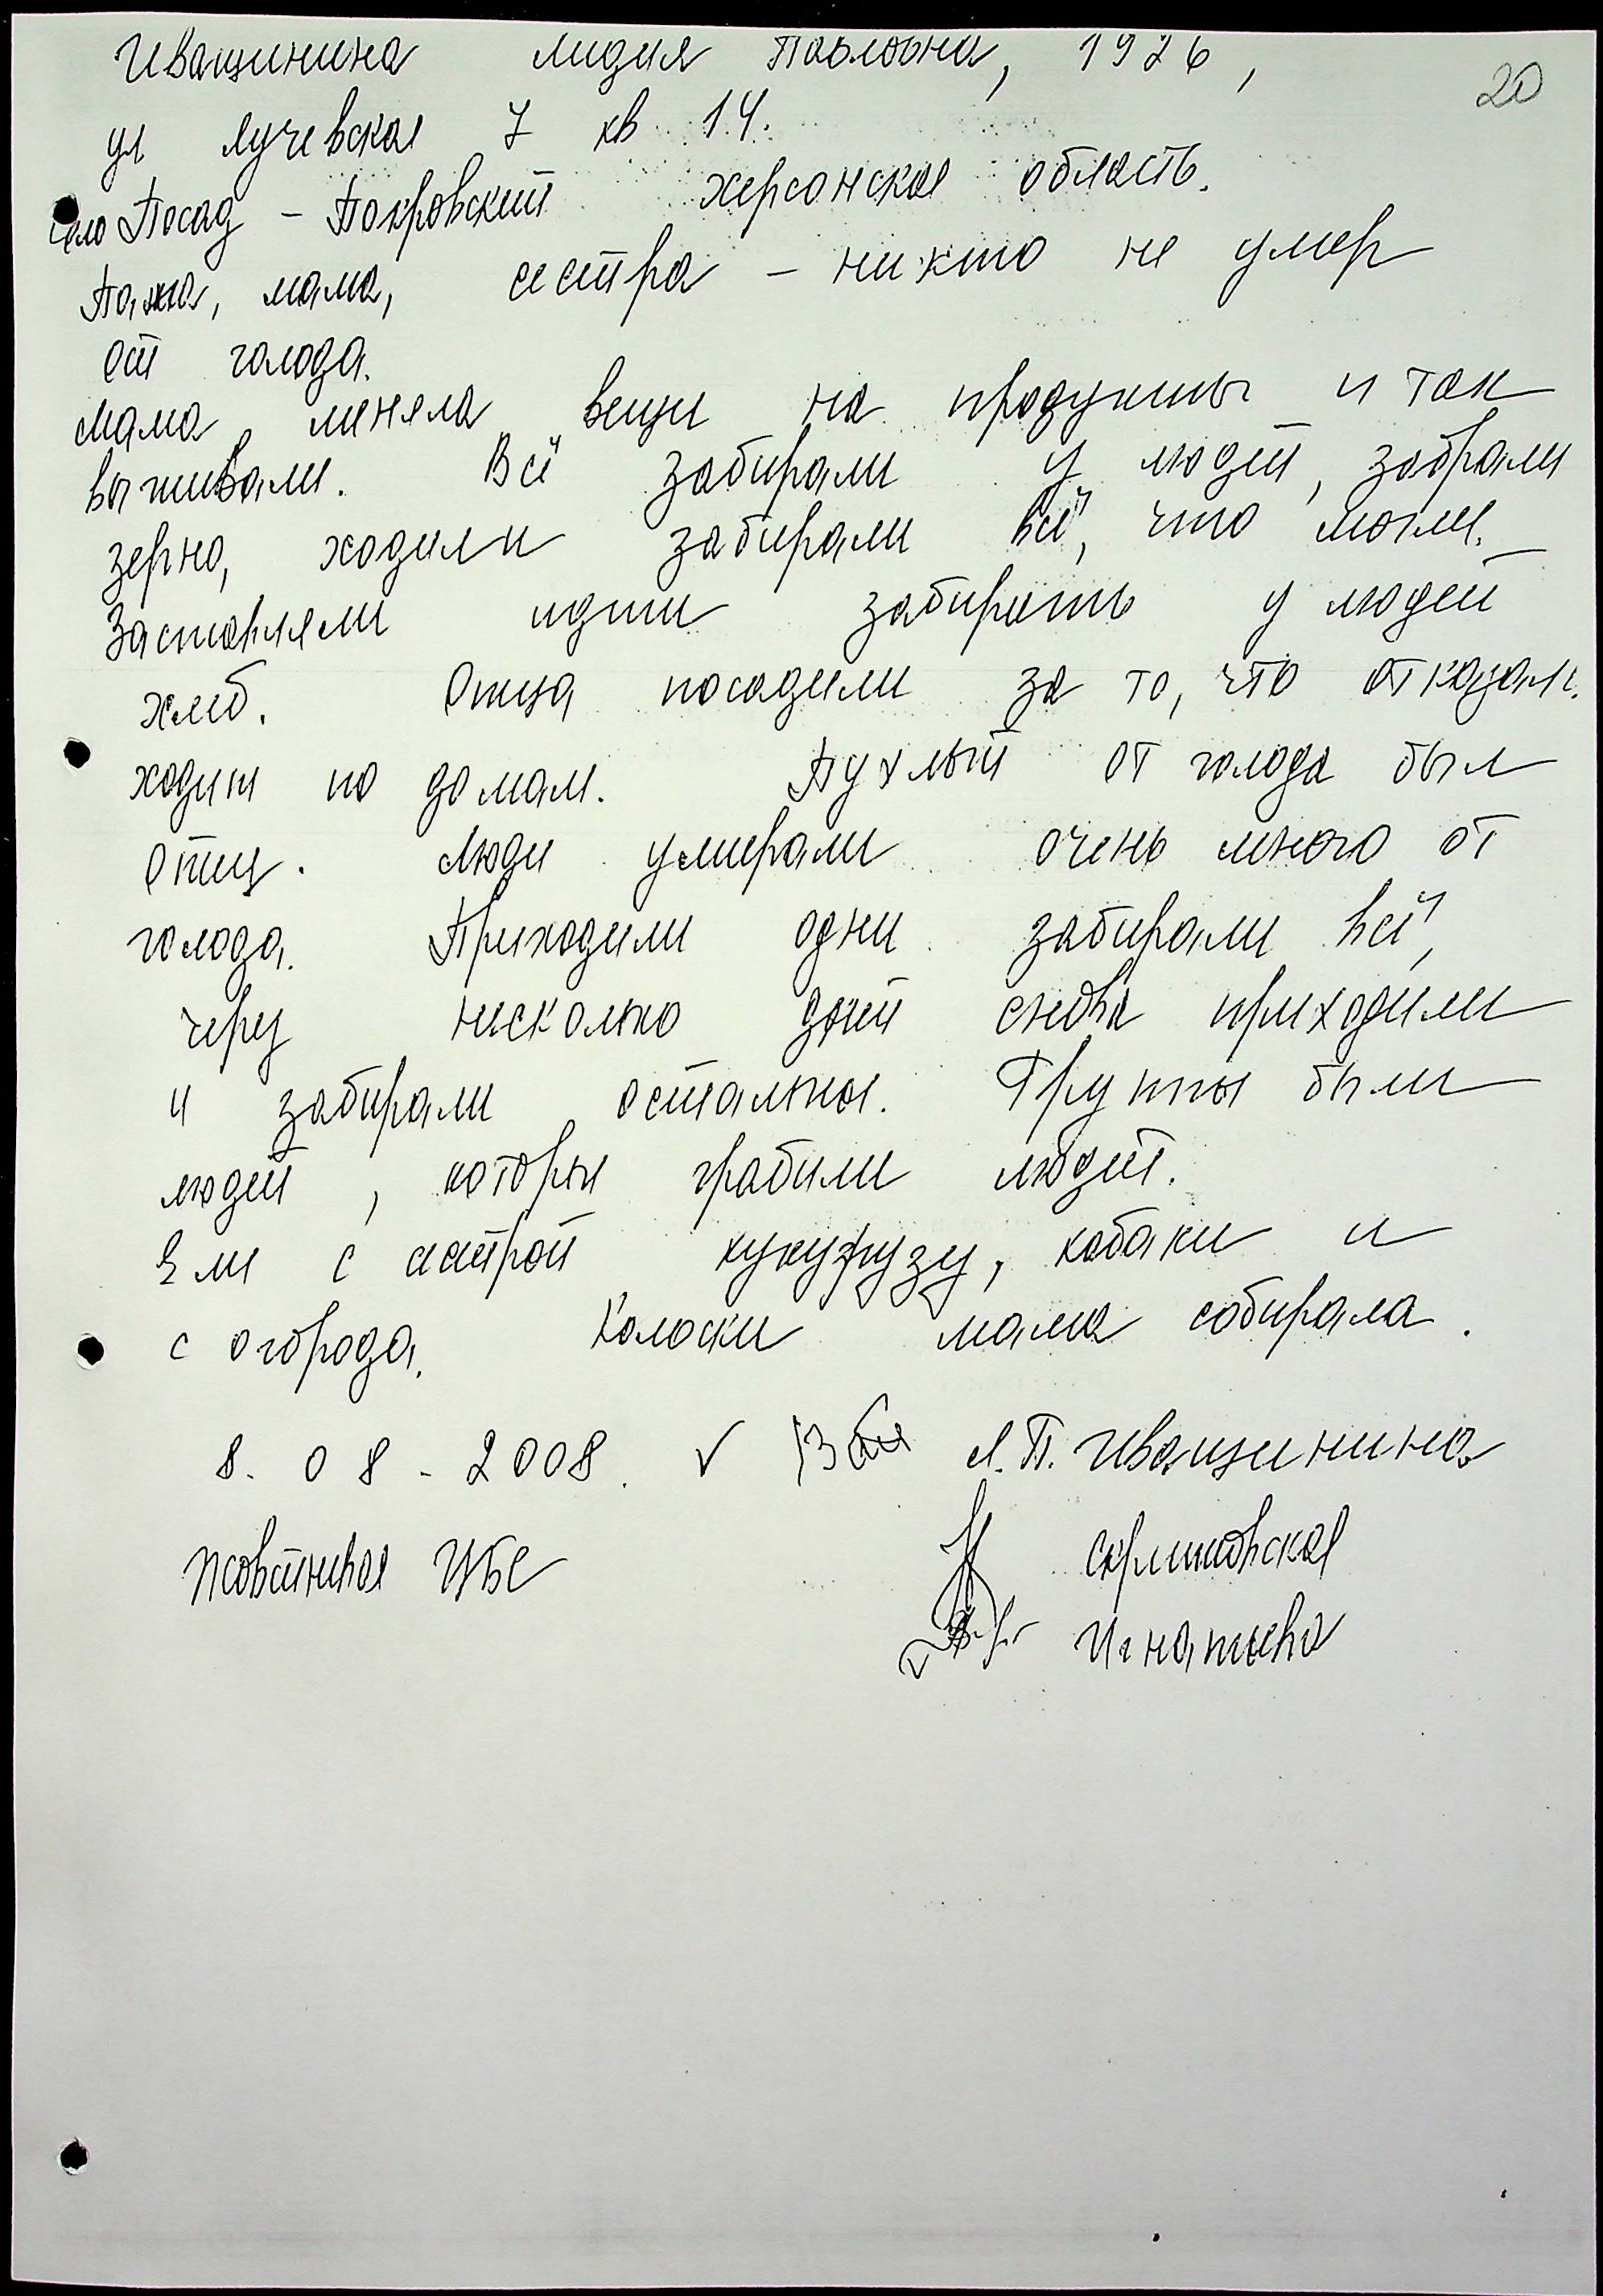 Иващинина Лидия Павловна, 1926,
20
ул Лучевская 7 кв 14.
село Посад - Покровский Херсонская область.
Папа, мама, сестра - никто не умер
от голода.
Мама меняла вещи на продукты и так
выживали. Всё забирали у людей, забрали
зерно, ходили забирали всё, что могли.
Заставляли идти забирать у людей
хлеб. Отца посадили за то, что отказал.
ходит по домам. Пухлый от голода был
отец. Люди умирали очень много от
голода. Приходили одни забирали всё,
через несколько дней снова приходили
и забирали остальные. Группы были
людей, которые грабили людей.
Ели с сестрой кукурузу, кабаки и
с огорода. Колоски мама собирала.
8. 08 - 2008. Л.П. Иващинина
Жовтнивая ЦБС
Игнатьева